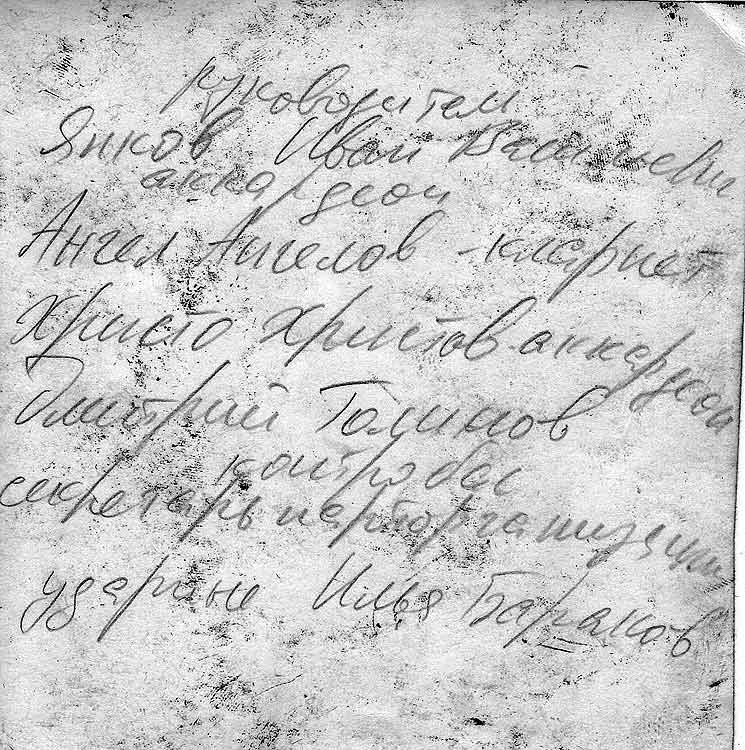 руководители
Янков Иван Васильевич
аккордеон
Ангел Ангелов - кларнет
Христо Христов-аккордеон
Дмитрий Галинов
контрабас
секретарь парторганизации
ударные Илья Бараков